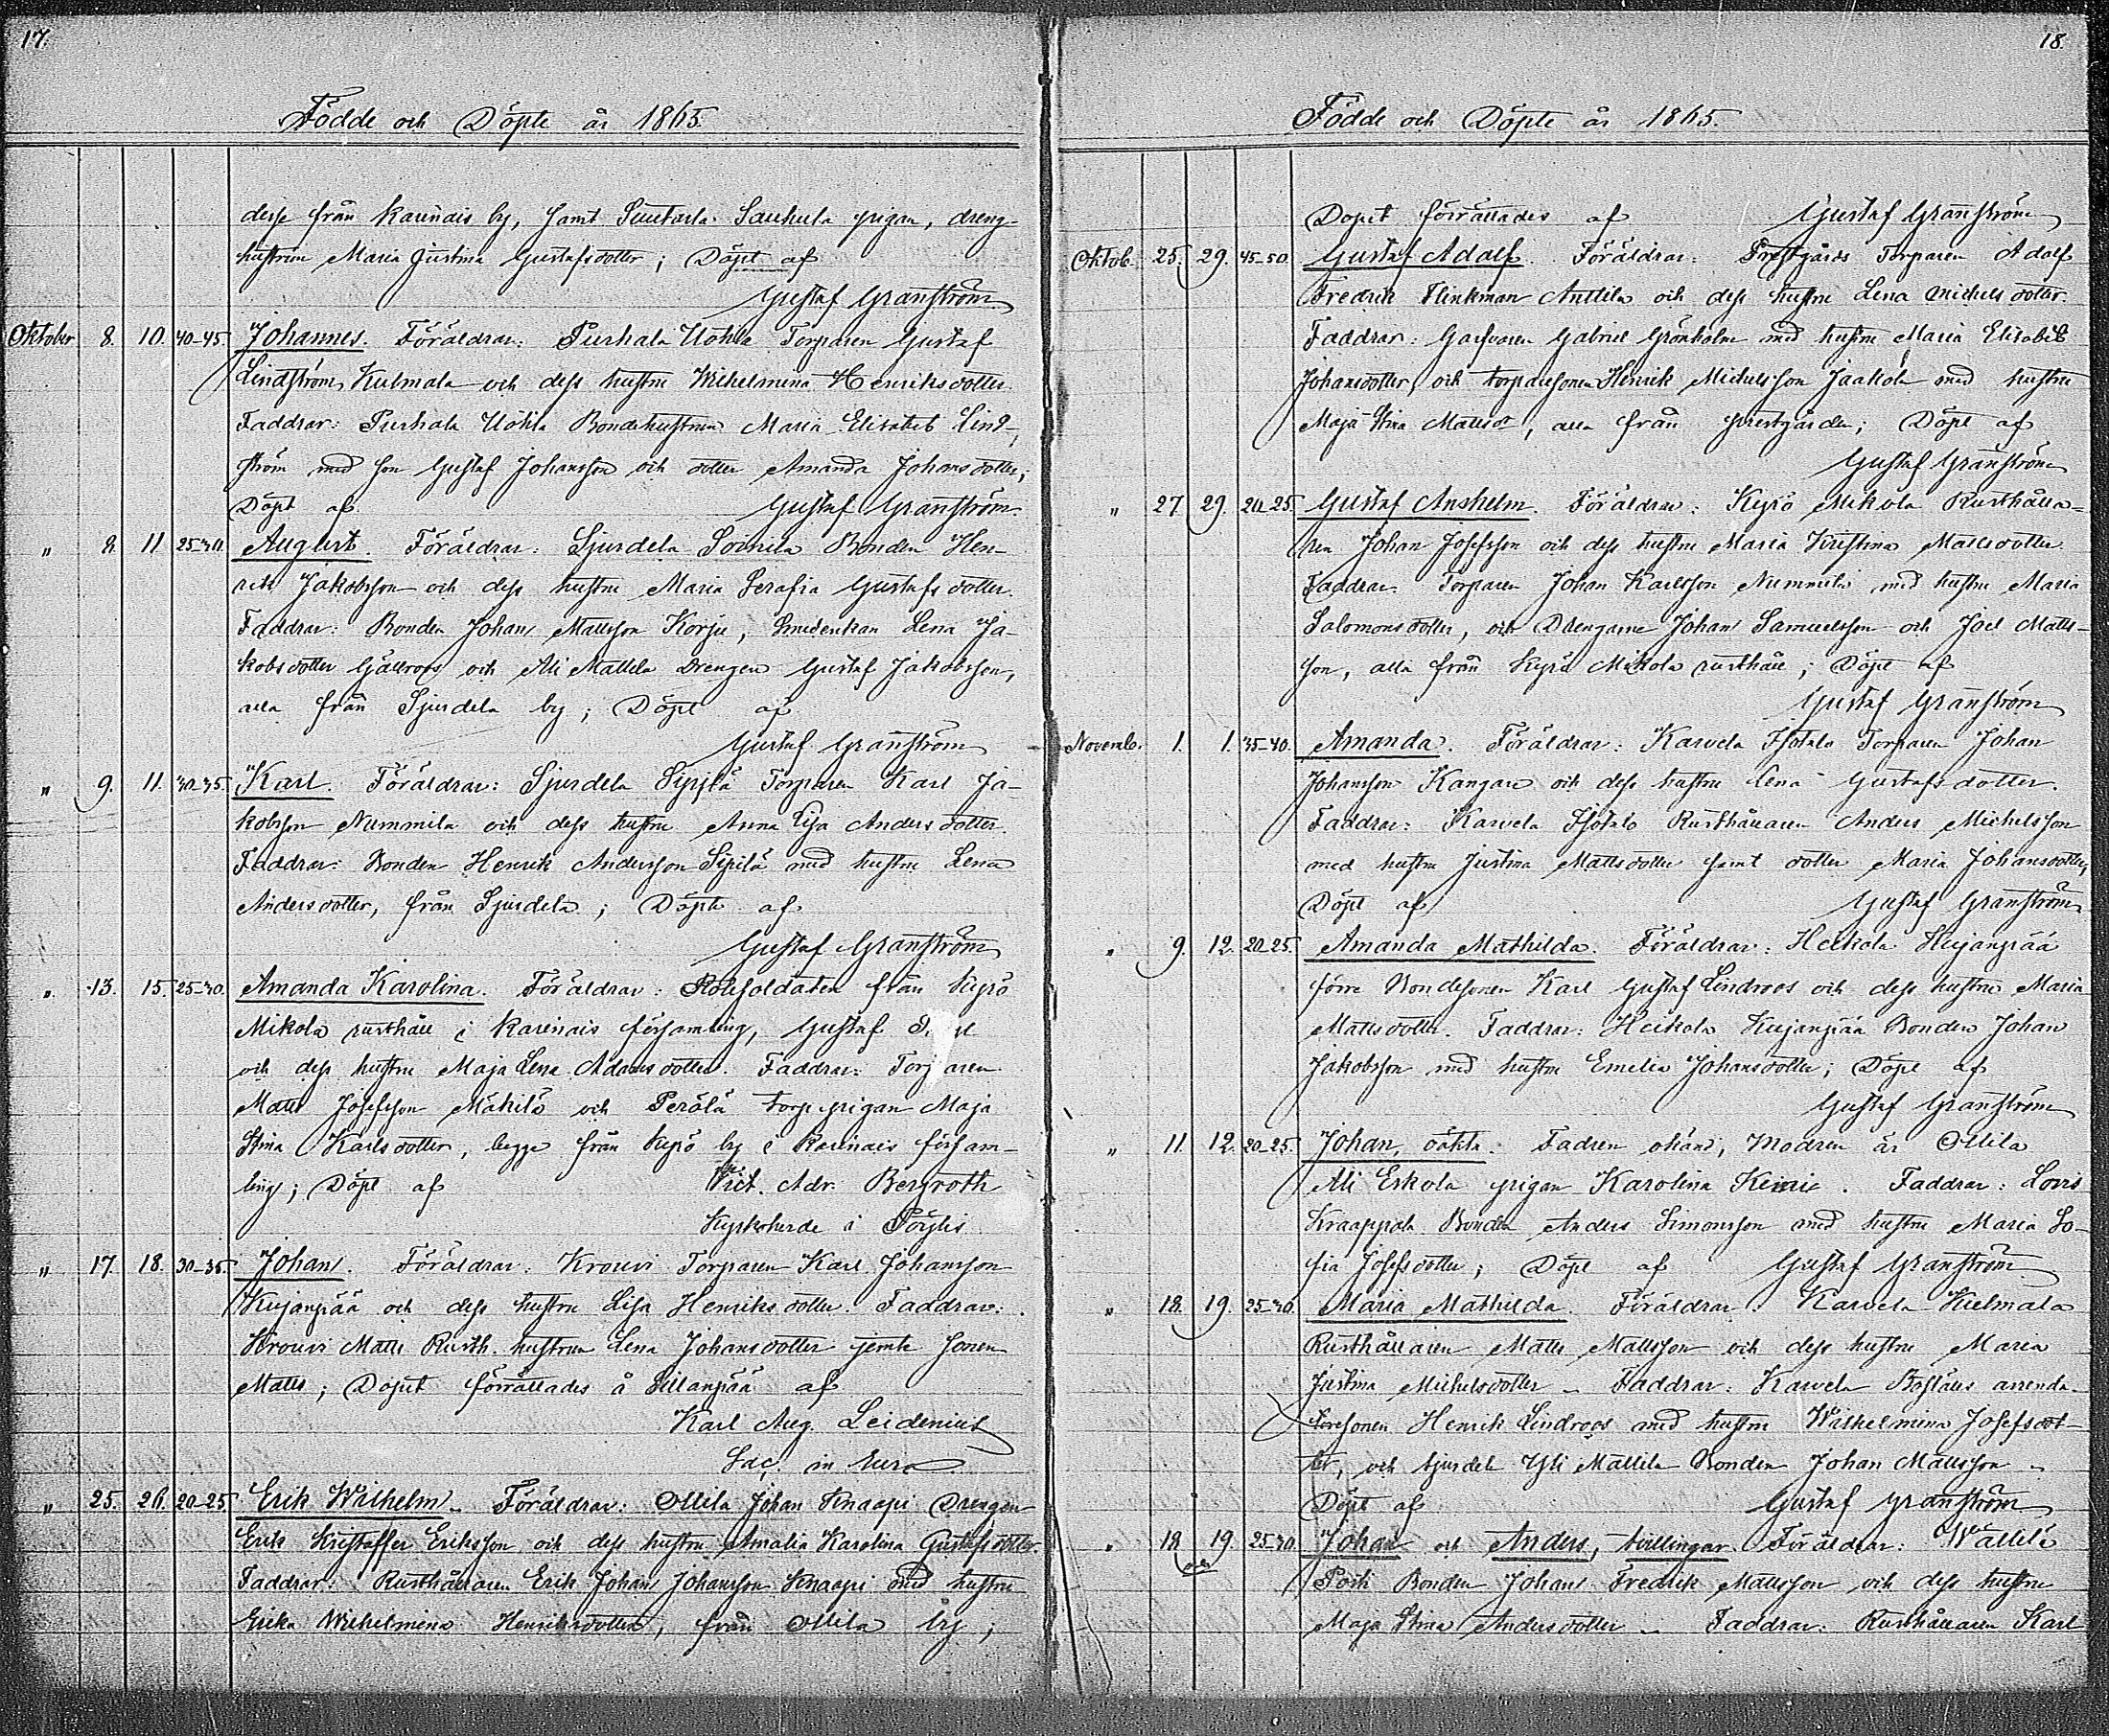 17.
Födde och Döpte år 1865.
desse från Karinais by, samt Suutarla Sauhula pigan, dreng-
hustrun Maria Justina Gustafsdotter; Döpt af
Gustaf Granström
Oktober 8. 10. 40-45. Johannes. Föräldrar: Purhala Uotila Torparen Gustaf
Lindström Kulmala och dess hustru Wilhelmina Henriksdotter.
Faddrar: Purhala Uotila Bondehustrun Maria Elisabet Lind-
ström med son Gustaf Johansson och dotter Amanda Johansdotter;
Döpt af Gustaf Granström.
" 8. 11 25-30. August. Föräldrar: Sjurdela Bonden Hen-
rik Jakobsson och dess hustru Maria Serafia Gustafsdotter.
Faddrar: Bonden Johan Mattsson Korju, Smedenkan Lena Ja-
kobsdotter Gällroos och Ali Mattila Drengen Gustaf Jakobsson,
alla från Sjurdela by; Döpt af
Gustaf Granström
" 9. 11. 30-35. Karl. Föräldrar: Sjurdela Sipilä Torparen Karl Ja-
kobsson Nummila och dess hustru Anna Lisa Andersdotter.
Faddrar: Bonden Henrik Andersson Sipilä med hustru Lena
Andersdotter, från Sjurdela; Döpte af
Gustaf Granström
" 13. 15. 25-30. Amanda Karolina. Föräldrar: Rotesoldaten från Kyrö
Mikola rusthåll i Karinais församling, Gustaf
och dess hustru Maja Lena Adamsdotter. Faddrar: Torparen
Matts Josefsson Mäkilä och Perälä torp pigan Maja
Stina Karlsdotter, begge från Kyrö by i Karinais försam-
ling; Döpt af Vict. Adr. Bergroth
Kyrkoherde i Pöytis.
" 17. 18. 30-35. Johan. Föräldrar: Krouvi Torparen Karl Johansson
Kujanpää och dess hustru Lisa Henriksdotter. Faddrar:
Krouvi Matts Rusth. hustrun Lena Johansdotter jemte sonen
Matts; Dopet förrättades å Sillanpää af
Karl Aug. Leidenius
Sac. in Eura
" 25. 26. 20-25 Erik Wilhelm. Föräldrar: Ollila Johan Knaapi Drengen
Erik Kristoffer Eriksson och dess hustru Amalia Karolina Gustafsdotter.
Faddrar: Rusthållaren Erik Johan Johansson Knaapi med hustru
Erika Wilhelmina Henriksdotter, från Ollila by;
18.
Födde och Döpte år 1865.
Dopet förrättades af Gustaf Granström
Oktob. 25. 29. 45-50. Gustaf Adolf. Föräldrar: Prestgårds Torparen Adolf
Fredrik Flinkman Anttila och dess hustru Lena Michelsdotter.
Faddrar: Garfvaren Gabriel Grönholm med hustru Maria Elisabet
Johansdotter, och torparesonen Henrik Michelsson Jaakola med hustru
Maja Stina Mattsdr, alla från prestgården; Döpt af
Gustaf Granström
" 27 29. 20-25. Gustaf Anshelm. Föräldrar: Kyrö Mikola Rusthålla-
ren Johan Josefsson och dess hustru Maria Kristina Mattsdotter.
Faddrar: Torparen Johan Karlsson Nummila med hustru Maria
Salomonsdotter, och Drengarne Johan Samuelsson och Joel Matts-
son, alla från Kyrö Mikola rusthåll; Döpt af
Gustaf Granström
Novemb. 1. 1. 35-40. Amanda. Föräldrar: Karvela Isotalo Torparen Johan
Johansson Kangare och dess hustru Lena Gustafsdotter.
Faddrar: Karvela Isotalo Rusthållaren Anders Michelsson
med hustru Justina Mattsdotter samt dotter Maria Johansdotter;
Döpt af Gustaf Granström
" 9. 12. 20-25. Amanda Mathilda. Föräldrar: Heikola Kujanpää
förre Bondesonen Karl Gustaf Lindroos och dess hustru Maria
Mattsdotter. Faddrar: Heikola Kujanpää Bonden Johan
Jakobsson med hustru Emelia Johansdotter; Döpt af
Gustaf Granström
" 11. 12. 20-25. Johan, oäkta. Fadren okänd; Modren är Ollila
Ali Eskola pigan Karolina. Faddrar: Lovis
Kraappala Bonden Anders Simonsson med hustru Maria So-
fia Josefsdotter; Döpt af Gustaf Granström
" 18. 19. 25-30. Maria Mathilda. Föräldrar: Karvela Kulmala
Rusthållaren Matts Mattsson och dess hustru Maria
Justina Michelsdotter. Faddrar: Karvela Boställs arrenda-
toresonen Henrik Lindroos med hustru Wilhelmina Josefsdot-
ter, och Sjurdela Yli Mattila Bonden Johan Mattsson.
Döpt af Gustaf Granström
" 18 19. 25-30. Johan och Anders, tvillingar. Föräldrar: Wällilä
Bonden Johan Fredrik Mattsson och dess hustru
Maja Stina Andersdotter. Faddrar: Rusthållaren Karl